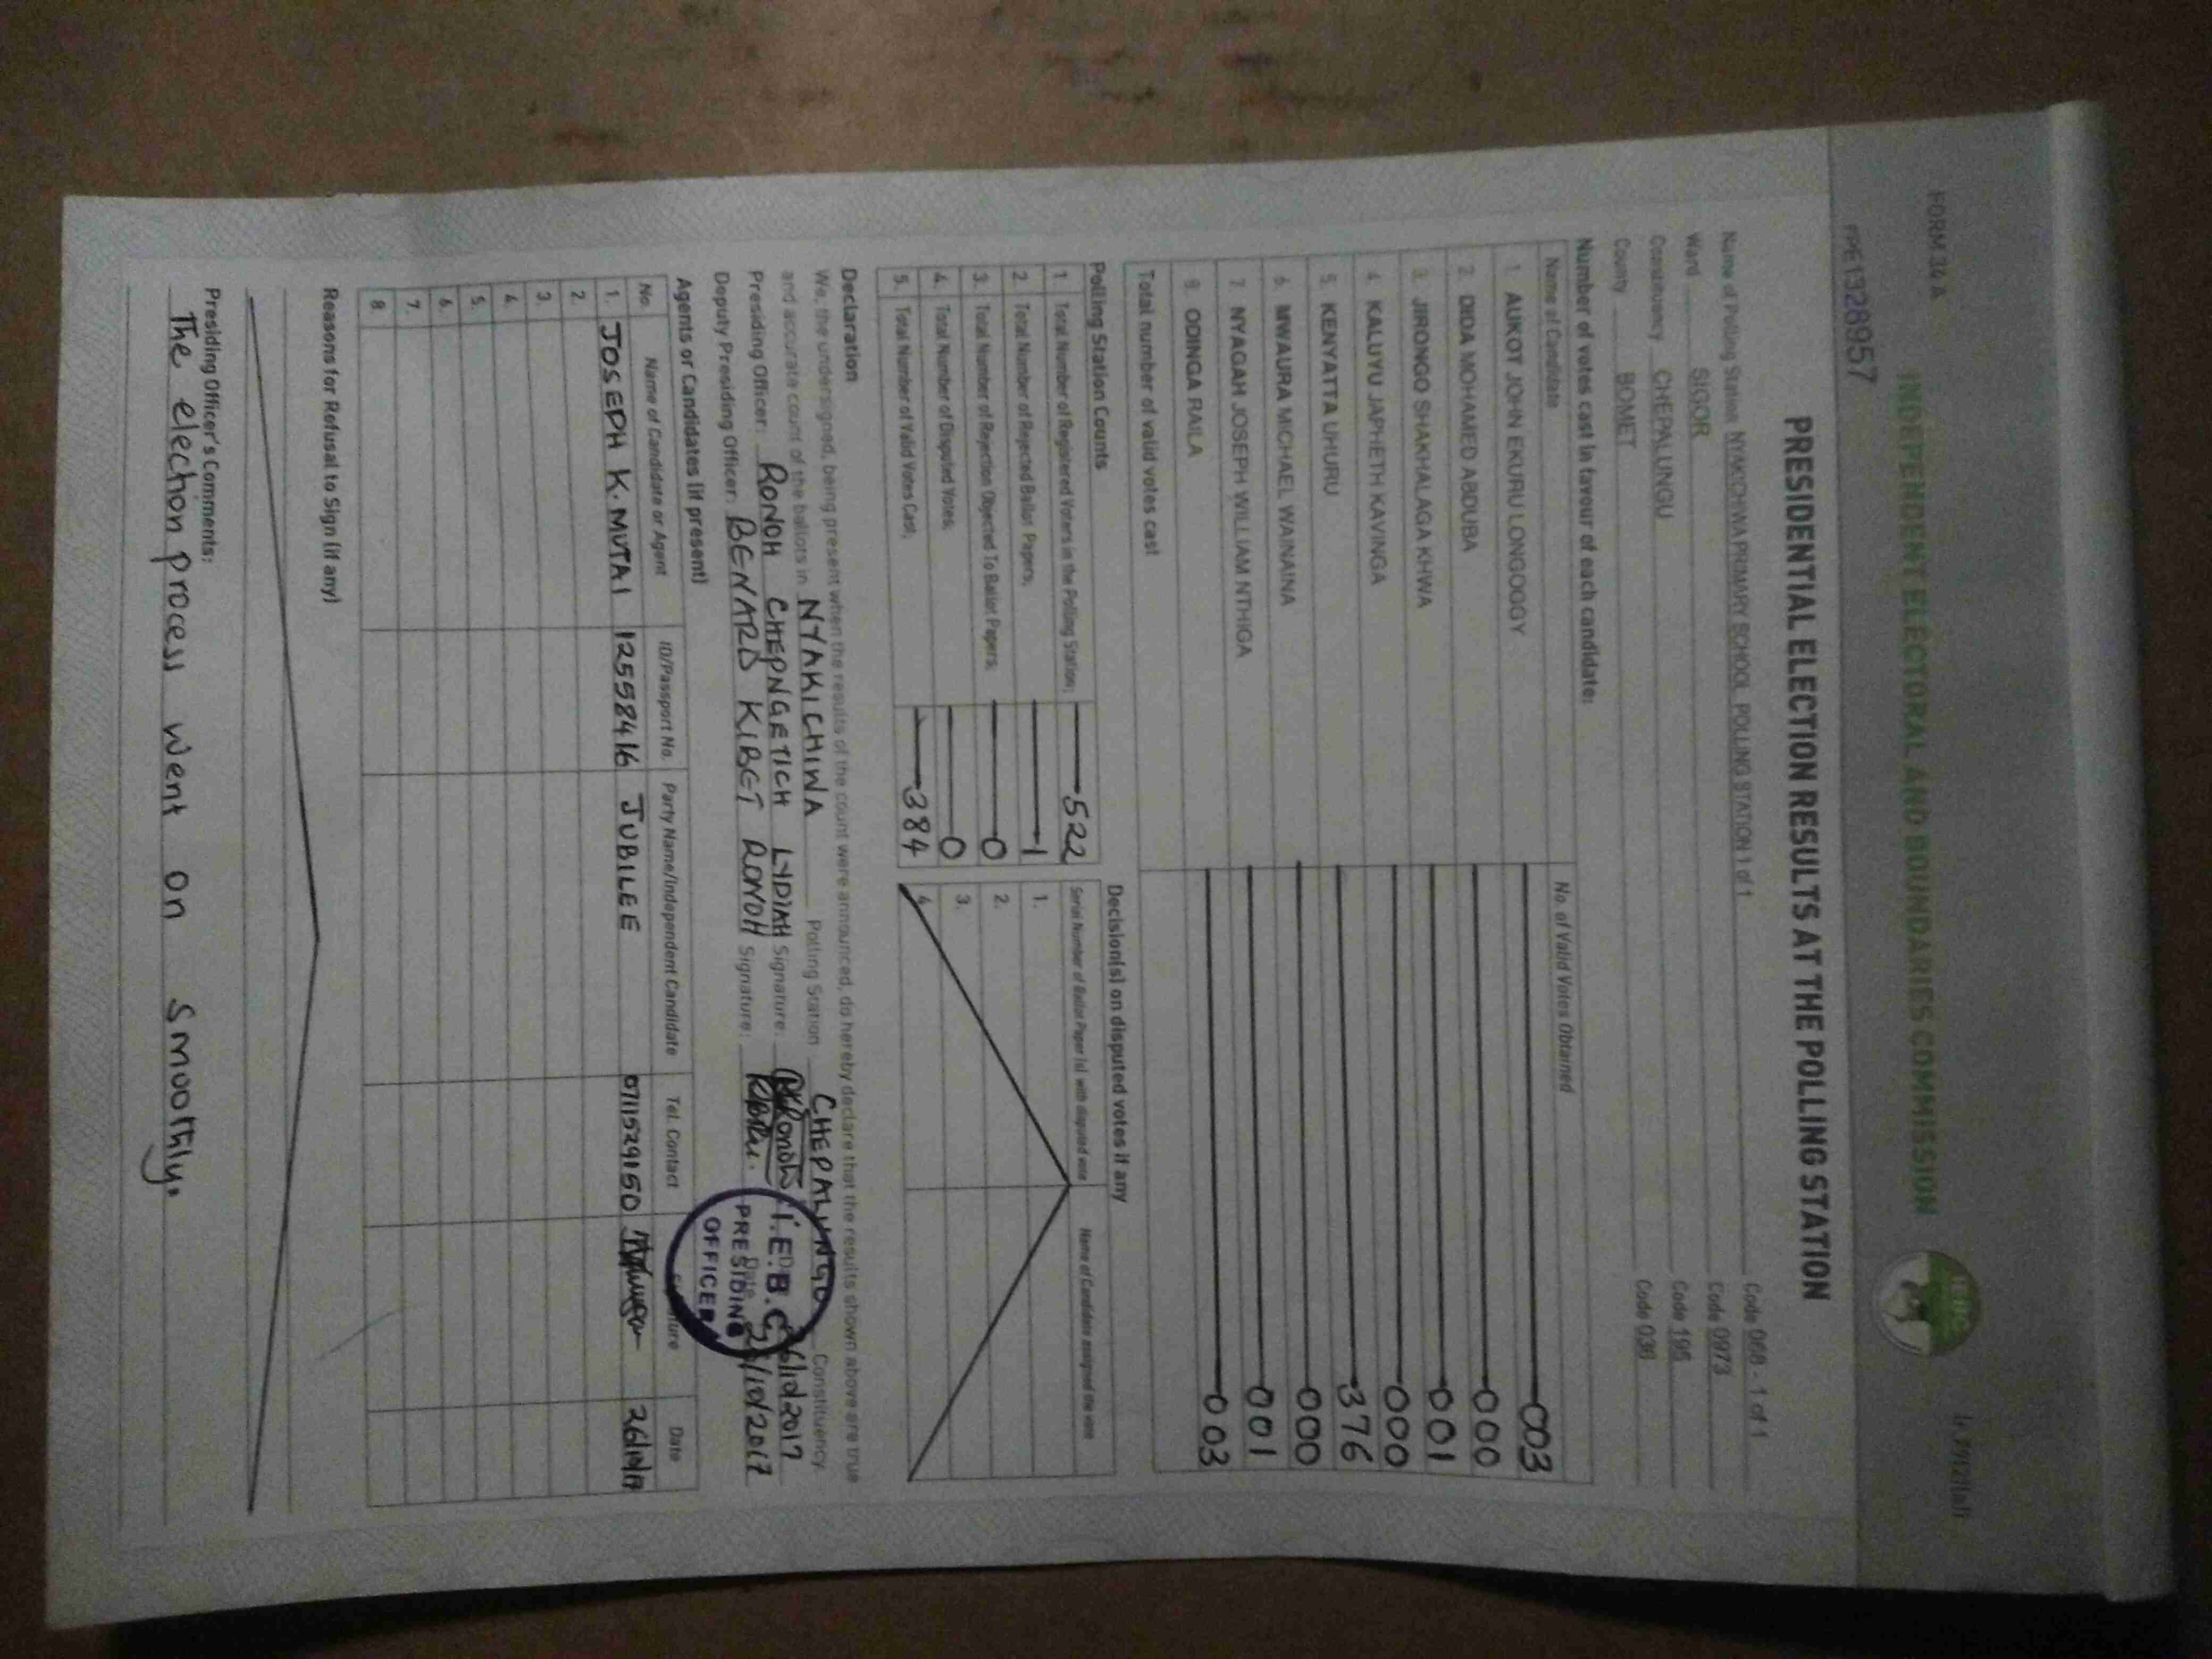 FORM 34 A
INDEPENDENT ELECTORAL AND BOUNDARIES COMMISSION
IEBC
FPE1328957
PRESIDENTIAL ELECTION RESULTS AT THE POLLING STATION
Name of Polling Station NYAKICHIWA PRIMARY SCHOOL POLLING STATION 1 of 1 Code 068 - 1 of 1
Ward SIGOR Code 0973
Constituency CHEPALUNGU Code 195
County BOMET Code 036
Number of votes cast in favour of each candidate:
Name of Candidate No. of Valid Votes Obtained
1. AUKOT JOHN EKURU LONGOGGY 003
2. DIDA MOHAMED ABDUBA 000
3. JIRONGO SHAKHALAGA KHWA 001
4. KALUYU JAPHETH KAVINGA 000
5. KENYATTA UHURU 376
6. MWAURA MICHAEL WAINAINA 000
7. NYAGAH JOSEPH WILLIAM NTHIGA 001
8. ODINGA RAILA 003
Total number of valid votes cast
Polling Station Counts
1. Total Number of Registered Voters in the Polling Station; 522
2. Total Number of Rejected Ballot Papers; 1
3. Total Number of Rejection Objected To Ballot Papers; 0
4. Total Number of Disputed Votes; 0
5. Total Number of Valid Votes Cast; 384
Decision(s) on disputed votes if any
Serial Number of Ballot Paper (s) with disputed vote Name of Candidate assigned the vote
1.
2.
3.
4.
Declaration
We, the undersigned, being present when the results of the count were announced, do hereby declare that the results shown above are true
and accurate count of the ballots in NYAKICHIWA Polling Station CHEPALUNGU Constituency.
Presiding Officer: RONOH CHEPNGETICH LYDIAH Signature: 26/10/2017
Deputy Presiding Officer: BENARD KIBET RONOH Signature: Date 26/10/2017
I.E.B.C
PRESIDING
OFFICER
Agents or Candidates (if present)
No. Name of Candidate or Agent ID/Passport No. Party Name/Independent Candidate Tel. Contact Signature Date
1. JOSEPH K. MUTAI 12558416 JUBILEE 0711529150 26/10/17
2.
3.
4.
5.
6.
7.
8.
Reasons for Refusal to Sign (if any)
Presiding Officer's Comments:
The election process went on smoothly.